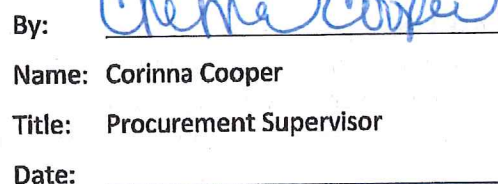 By: Cooper
Name: Corinna Cooper
Title: Procurement Supervisor
Date: